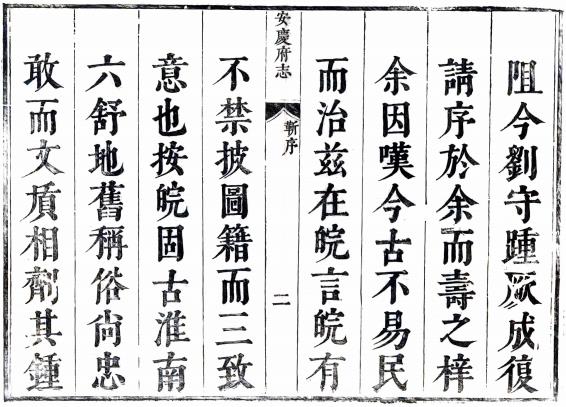 阻今劉守踵厥成復
請序於余而壽之梓
余因嘆今古不易民
而治兹在皖言皖有
安慶府志
靳序
二
不禁披圖籍而三致
意也按皖固古淮南
六舒地舊稱俗尚忠
敢而文質相劑其鍾